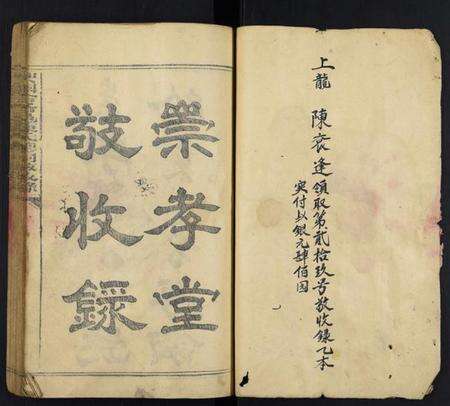 上龍 陳逢領取第貳拾玖号敬收錄乙本
实付銀元肆佰圆
崇孝堂
敬收錄